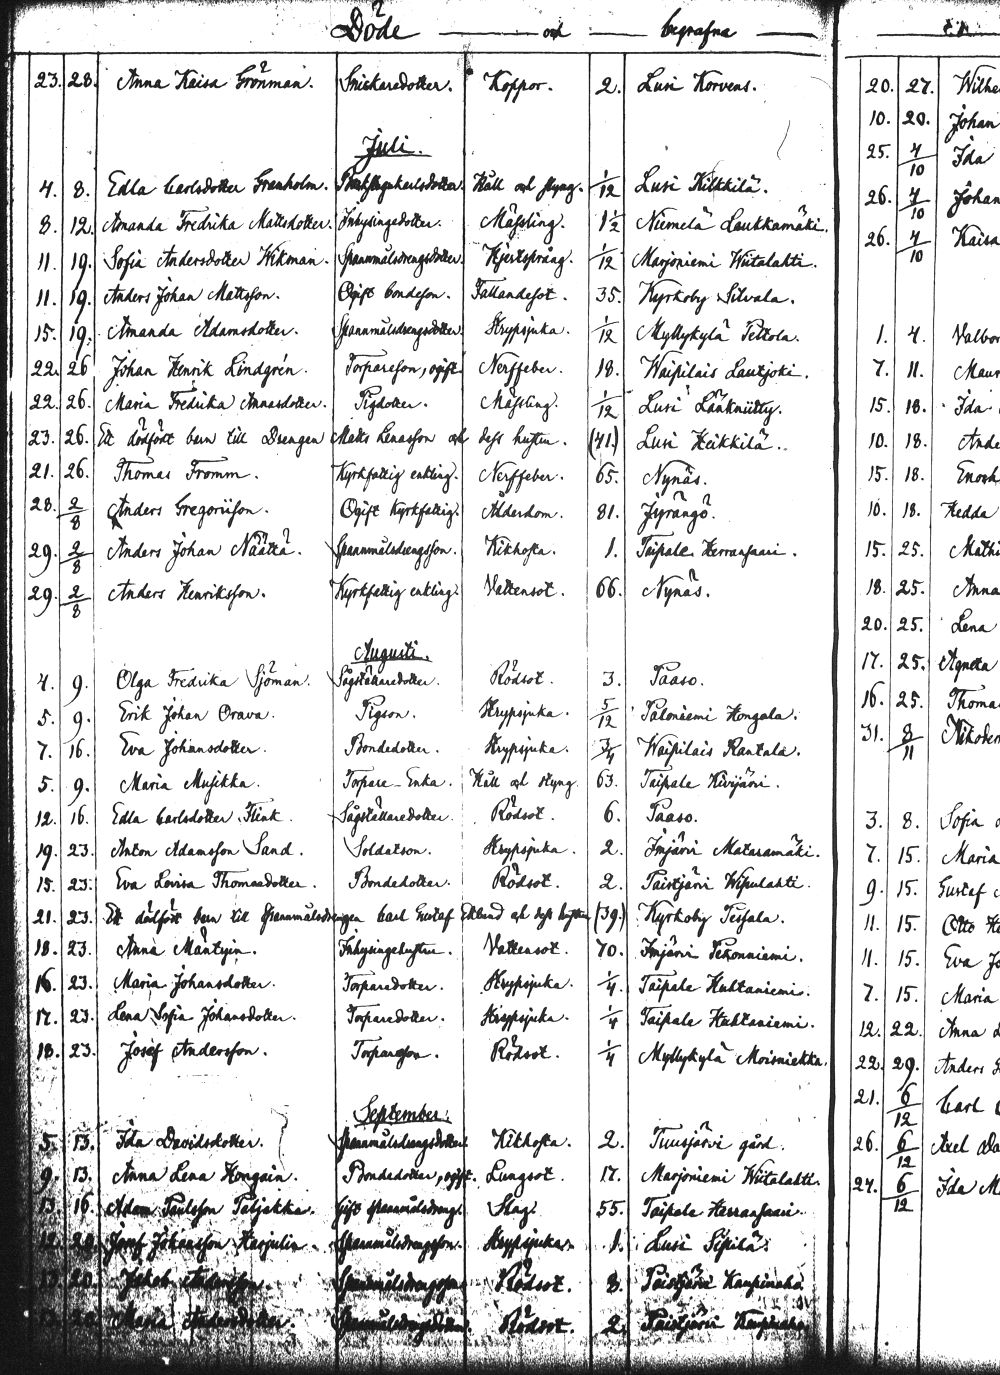 Döde — och — begrafna —
23. 28. Anna Kaisa Grönman. Snickaredotter. Koppor. 2. Lusi Korvens.
Juli.
4. 8. Edla Carlsdotter Granholm. Håll och styng. 1/12 Lusi Kilkkilä.
8. 12. Amanda Fredrika Mattsdotter. Inhysingedotter. Mässling. 1 1/2 Niemelä Laukkamäki.
11. 19. Sofia Andersdotter Wikman. Spannmålsdrengsdotter. Hjertsprång. 1/12 Marjoniemi Wiitalahti.
11. 19. Anders Johan Mattsson. Ogift bondeson. Fallandesot. 35. Kyrkoby Silvala.
15. 19. Amanda Adamsdotter. Spannmålsdrengsdotter. Strypsjuka. 1/12 Myllykylä Tettola.
22. 26 Johan Henrik Lindgrén. Torpareson, ogift Nerffeber. 18. Waipilais Lautjoki.
22. 26. Maria Fredrika Annasdotter. Pigdotter. Mässling. 1/12 Lusi Länkniitty.
23. 26. Ett dödfödt barn till Drengen Matts Henasson och dess hustru. (41.) Lusi Heikkilä.
21. 26. Thomas Fromm. Kyrkfattig enkling. Nerffeber. 65. Nynäs.
28. 2/8 Anders Gregoriison. Ogift Kyrkfattig. Ålderdom. 81. Jyrängö.
29. 2/8 Anders Johan Näätä. Spannmålsdrengsson. Kikhosta. 1. Taipale Herransaari.
29. 2/8 Anders Henriksson. Kyrkfattig enkling. Vattensot. 66. Nynäs.
Augusti.
4. 9. Olga Fredrika Sjöman. Sågställaredotter. Rödsot. 3. Paaso.
5. 9. Erik Johan Orava. Pigson. Strypsjuka. 5/12 Paloniemi Hongala.
7. 16. Eva Johansdotter. Bondedotter. Strypsjuka. 3/4 Waipilais Rantala.
5. 9. Maria Musikka. Torpare-Enka. Håll och styng 63. Taipale Kivijärvi.
12. 16. Edla Carlsdotter Flink. Sågställaredotter. Rödsot. 6. Paaso.
19. 23. Anton Adamsson Sand. Soldatson. Strypsjuka. 2. Imjärvi Mataramäki.
15. 23. Eva Lovisa Thomasdotter. Bondedotter. Rödsot. 2. Paistjärvi Wipulahti.
21. 23. Ett dödfödt barn till Spannmålsdrengen Carl Gustaf Eklund och dess hustru (39.) Kyrkoby Tesjala.
18. 23. Anna Mäntyin. Inhysingehustru. Vattensot. 70. Imjärvi Pekonniemi.
16. 23. Maria Johansdotter. Torparedotter. Strypsjuka. 1/4. Taipale Huhtaniemi.
17. 23. Lena Sofia Johansdotter. Torparedotter. Strypsjuka. 1/4 Taipale Huhtaniemi.
18. 23. Josef Andersson. Torpareson. Rödsot. 1/4 Myllykylä Moisniekka.
September.
5. 13. Ida Davidsdotter. Spannmålsdrengsdotter. Kikhosta. 2. Tuusjärvi gård.
9. 13. Anna Lena Hongain. Bondedotter, ogift. Lungsot. 17. Marjoniemi Wiitalahti.
13. 16. Adam Paulsson Paljakka. Gift spannmålsdreng. Slag. 55. Taipale Herransaari.
12. 20. Josef Johansson Harjulin. Spannmålsdrengsson. Strypsjuka. 1. Lusi Sipilä.
20. Jakob Andersson. Spannmålsdrengsson. Rödsot. 8. Paistjärvi
20. Maria Andersdotter. Spannmålsdrengsdotter. Rödsot. 2. Paistjärvi
20. 27. Wilhe
10. 20. Johan
25. 4/10 Ida
26. 4/10 Johan
26. 4/10 Kaisa
1. 4. Valbor
7. 11. Maur
15. 18. Ida
10. 18. Ande
15. 18. Enok
10. 18. Hedda
15. 25. Mathi
18. 25. Anna
20. 25. Lena
17. 25. Agneta
16. 25. Thoma
31. 8/11 Nikodem
3. 8. Sofia
7. 15. Maria
9. 15. Gustaf
11. 15. Otto
11. 15. Eva Jo
7. 15. Maria
12. 22. Anna
22. 29. Anders
21. 6/12 Carl
26. 6/12 Axel
27. 6/12 Ida M